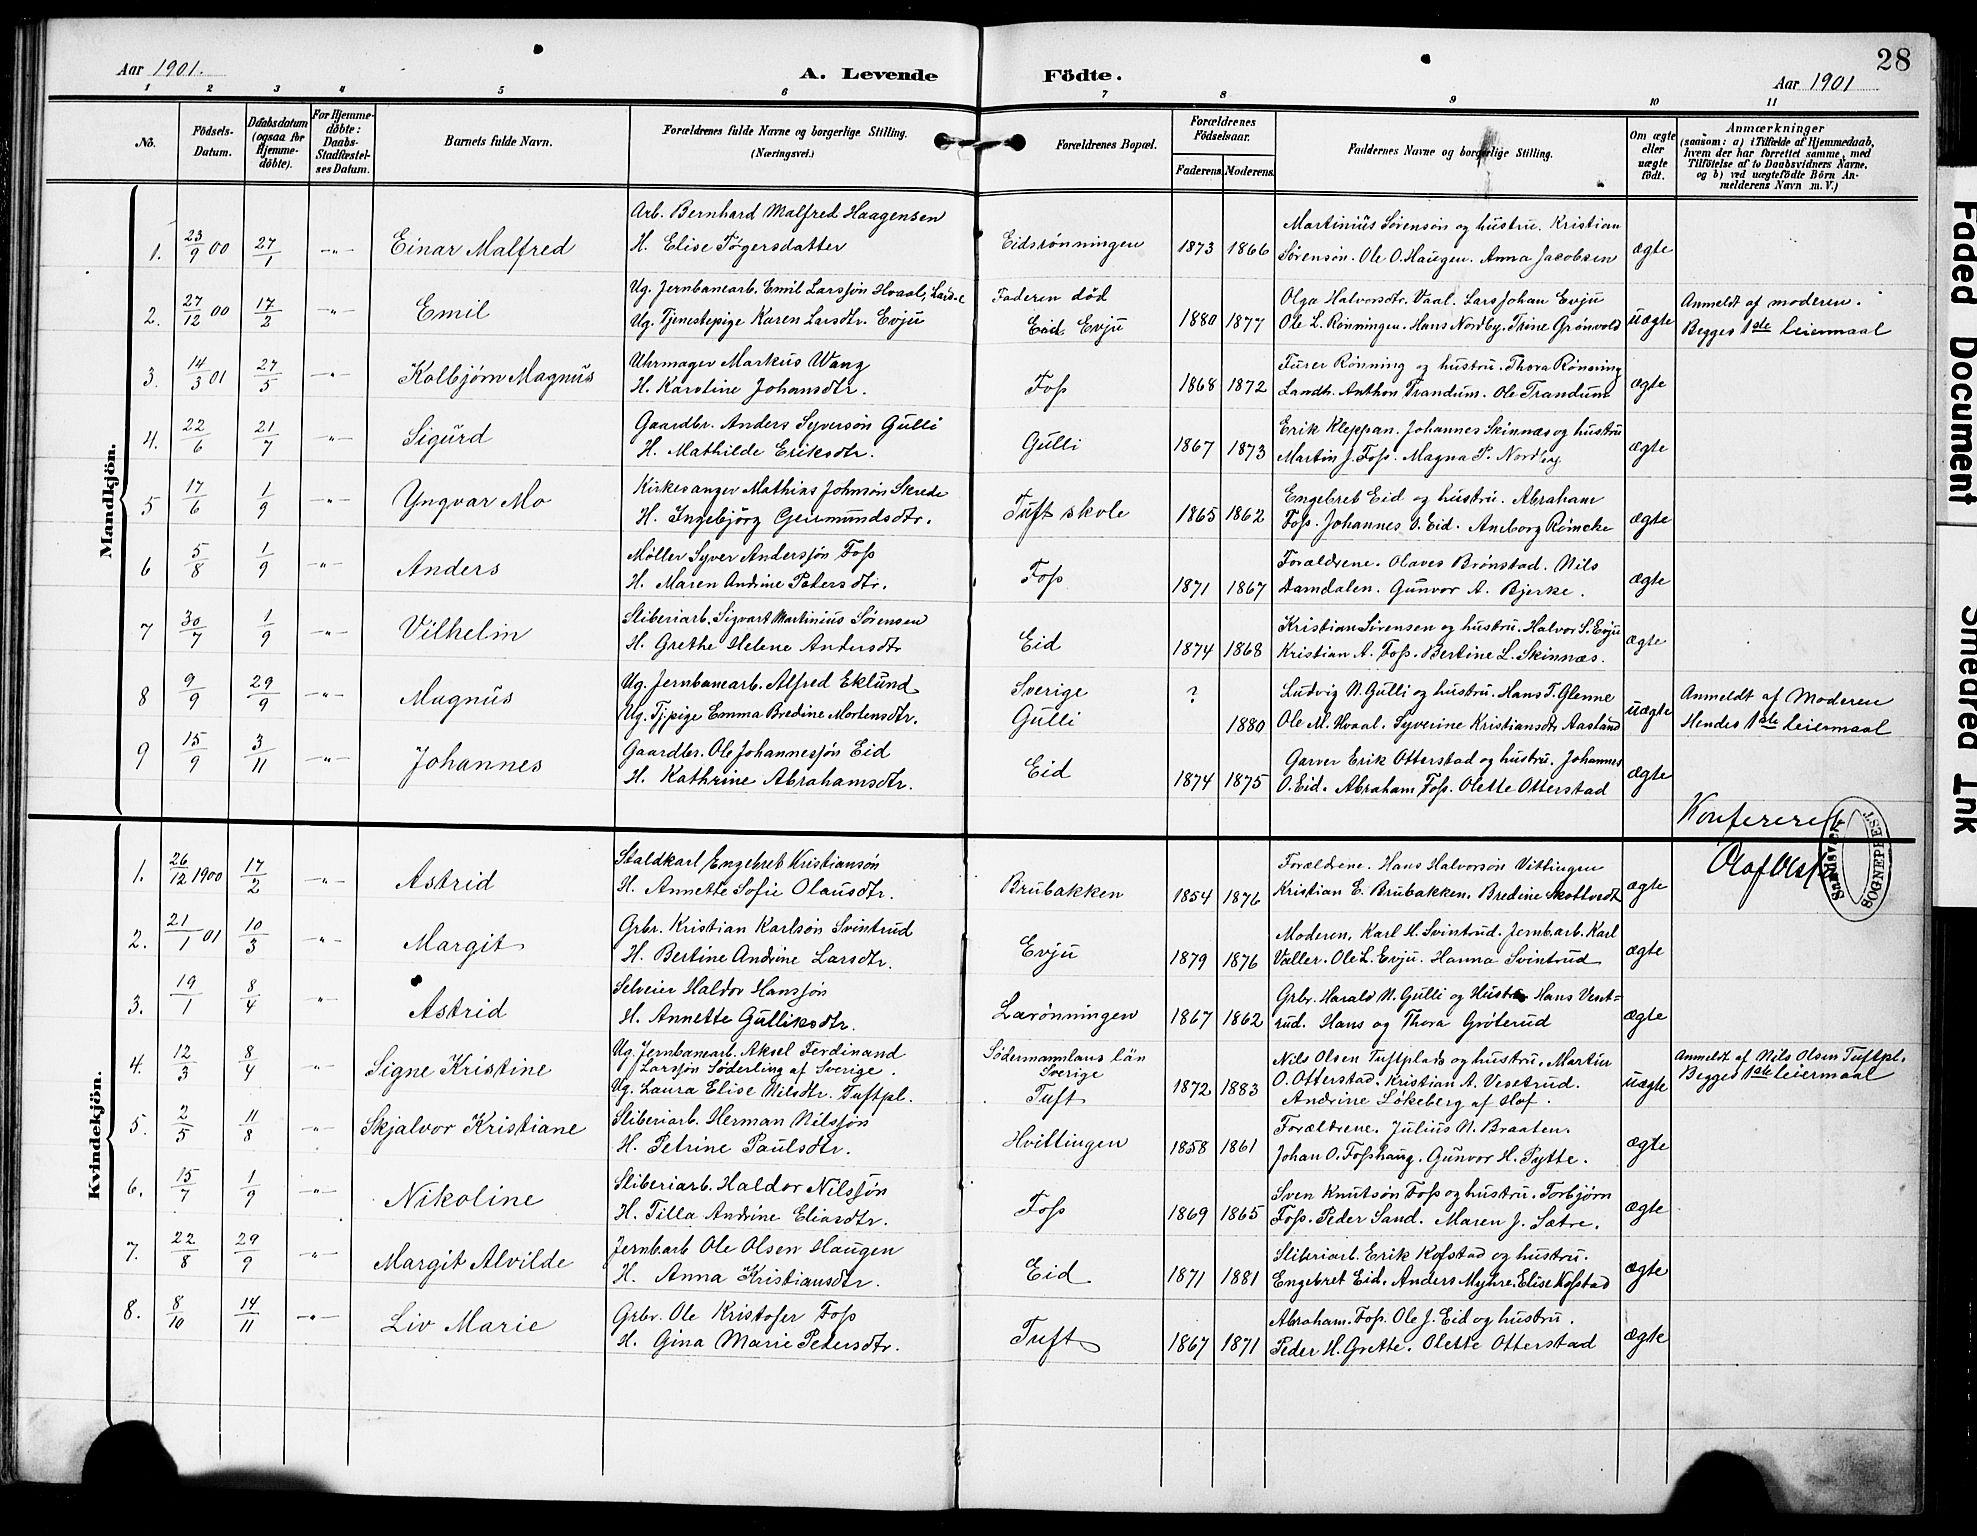 Aar 1901. A. Levende Födte. Aar 1901 28
1 2 3 4 5 6 7 8 9 10 11
No. Födsels-Datum. Daabsdatum (ogsaa for Hjemme-döbte). For Hjemme-döbte: Daabs-Stadfæstel-ses Datum. Barnets fulde Navn. Forældrenes fulde Navne og borgerlige Stilling. (Næringsvei.) Forældrenes Bopæl. Forældrenes Födselsaar. Faderens Moderens Faddernes Navne og borgerlige Stilling. Om ægte eller uægte födt. Anmærkninger (saasom: a) i Tilfælde af Hjemmedaab, hvem der har forrettet samme, med Tilföielse af to Daabsvidners Navne, og b) ved uægtefödte Börn An-melderens Navn m. V.)
Mandkjön.
Arb. Bernhard Malfred Haagensen Martinius Sørensøn og hustru. Kristian
1. 23/9 00 27/1 -"- Einar Malfred H. Elise Tøgersdatter Eidsrønningen 1873 1866 Sørensøn. Ole O. Haugen. Anna Jacobsen ægte
Ug. Jernbanearb. Emil Larssøn Hvaal, Faderen død Olga Halvorsdtr. Vaal. Lars Johan Evju Anmeldt af moderen.
2. 27/12 00 17/2 -"- Emil Ug. Tjenestepige Karen Larsdtr. Evju Eid Evju 1880 1877 Ole L. Rønningen. Hans Nordby. Trine Grønvold uægte Begges 1ste leiermaal
Uhrmager Markus Wang Fuser Rønning og hustru. Thora Rønning
3. 14/3 01 27/5 -"- Kolbjørn Magnus H. Karoline Johansdtr. Foss 1868 1872 Landh. Anthon Trandum. Ole Trandum ægte
Gaardbr. Anders Syversøn Gulli Erik Kleppan. Johannes Skinnæs og hustru
4. 22/6 21/7 -"- Sigurd H. Mathilde Eriksdtr. Gulli 1867 1873 Martin J. Foss. Magna P. Nordby ægte
Kirkesanger Mathias Johnsøn Skrede Engebret Eid og hustru. Abraham
5 17/6 1/9 -"- Yngvar Mo H. Ingebjörg Geirmundsdtr. Tuft skole 1865 1862 Foss. Johannes O. Eid. Anborg Römcke ægte
Møller Syver Anderssøn Foss Forældrene. Olaves Brønstad. Nils
6 5/8 1/9 -"- Anders H. Maren Andrine Petersdtr. Foss 1871 1867 Damdalen. Gunvor A. Bjerke. ægte
Sliberiarb. Sigvart Martinius Sørensen Kristian Sørensen og hustru. Halvor S. Evju
7 30/7 1/9 -"- Vilhelm H. Grethe Helene Andersdtr Eid 1874 1868 Kristian A. Foss. Bertine L. Skinnæs. ægte
Ug. Jernbanearb. Alfred Eklund Sverige ? Ludvig N. Gulli og hustru. Hans T. Glenne Anmeldt af Moderen
8 9/9 29/9 -"- Magnus Ug. Tj.pige Emma Bredine Mortensdtr. Gulli 1880 Ole M. Hvaal. Syverine Kristiansdtr Aasland uægte Hendes 1ste leiermaal
Gaardbr. Ole Johannessøn Eid Garver Erik Otterstad og hustru. Johannes
9 15/9 3/11 -"- Johannes H. Kathrine Abrahamsdtr. Eid 1874 1875 O. Eid. Abraham Foss. Olette Otterstad ægte
Konfereret
Kvindekjön.
Staldkarl Engebret Kristiansøn Forældrene. Hans Halvorsøn Vittingen Olaf Olsen
SOGNEPREST. SANDSVÆR
1. 26/12 1900 17/2 -"- Astrid H. Annette Sofie Olausdtr. Brubakken 1854 1876 Kristian E. Brubakken. Bredine Skottvedt ægte
Grbr. Kristian Karlsøn Svintrud Moderen, Karl H. Svintrud. Jernb.arb. Karl
2. 21/1 01 10/3 -"- Margit H. Bertine Andrine Larsdtr. Evju 1879 1876 Væller. Ole L. Evju. Hanna Svintrud ægte
Selveier Haldor Hanssøn Grbr. Harald N. Gulli og Hustru Hans Vest=
3. 19/1 8/4 -"- Astrid H. Annette Gulliksdtr. Larønningen 1867 1862 rud. Hans og Thora Grøterud ægte
Ug. Jernbanearb. Aksel Ferdinand Södermannlans län Nils Olsen Tuftplads og hustru. Martin Anmeldt af Nils Olsen Tuftpl.
4. 12/3 8/4 -"- Signe Kristine Larssøn Söderling af Sverige. Sverige O. Otterstad. Kristian A. Vestrud. Begges 1ste leiermaal
Ug. Laura Elise Nilsdtr. Tuftpl. Tuft 1872 1883 Andrine Løkeberg af Hof. uægte
Sliberiarb. Herman Nilssøn Forældrene. Julius N. Braaten.
5. 2/5 11/8 -"- Skjalvor Kristiane H. Petrine Paulsdtr. Hvittingen 1858 1861 Johan O. Fosshaug. Gunvor H. Pytte. ægte
Sliberiarb. Haldor Nilssøn Sven Knutsøn Foss og hustru. Torbjørn
6. 15/7 1/9 -"- Nikoline H. Tilla Andrine Eliasdtr. Foss 1869 1865 Foss. Peder Sand. Maren J. Sætre. ægte
Jernbarb Ole Olsen Haugen Sliberiarb. Erik Kofstad og hustru.
7. 22/8 29/9 -"- Margit Alvilde H. Anna Kristiansdtr. Eid 1871 1881 Engebret Eid. Anders Myhre. Elise Kofstad ægte
Grbr. Ole Kristofer Foss Abraham. Foss. Ole J. Eid og hustru.
8. 8/10 14/11 -"- Liv Marie H. Gina Marie Petersdtr. Tuft 1867 1871 Peder H. Grette. Olette Otterstad ægte
Faded Document
Smeared Ink